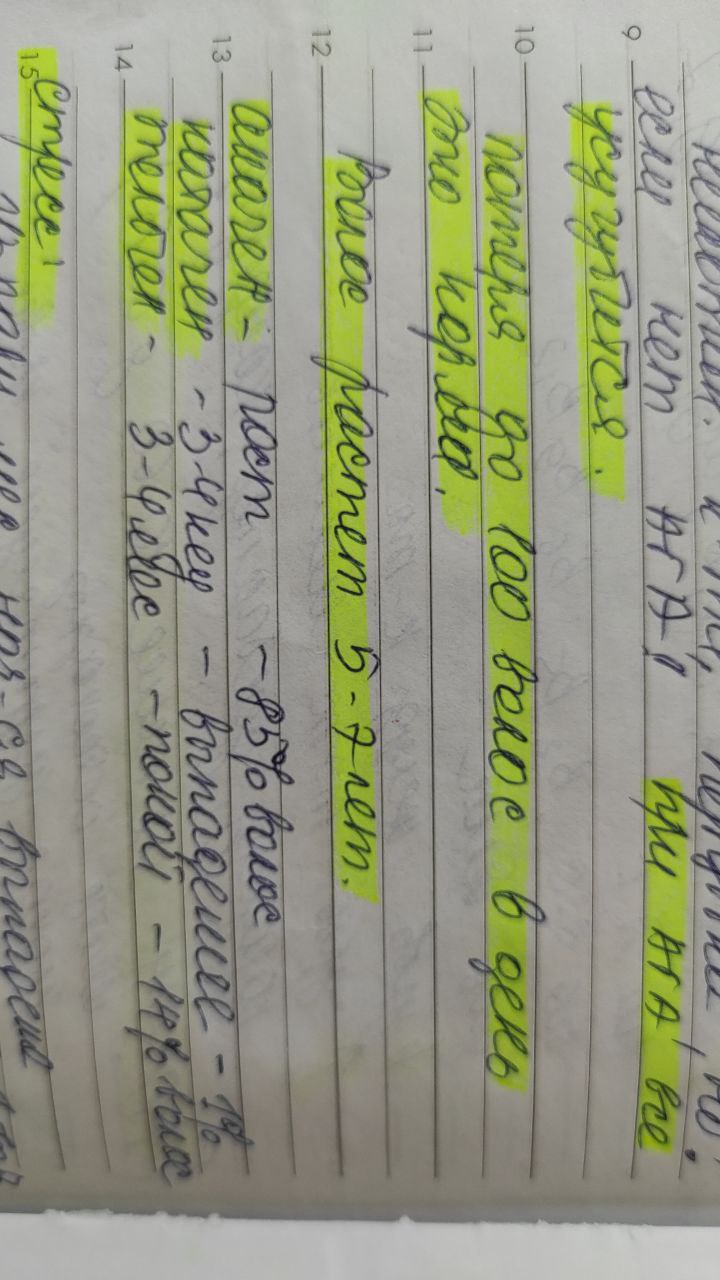 9
если нет АГА! при АГА все
усугубится.
10
потеря до 100 волос в день
11
это норма.
12
Волос растет 5-7 лет.
13
анаген - рост - 85% волос
катаген - 3-4 нед - выпадение - 1%
14
телоген - 3-4 мес - покой - 14% волос
15
Стресс!